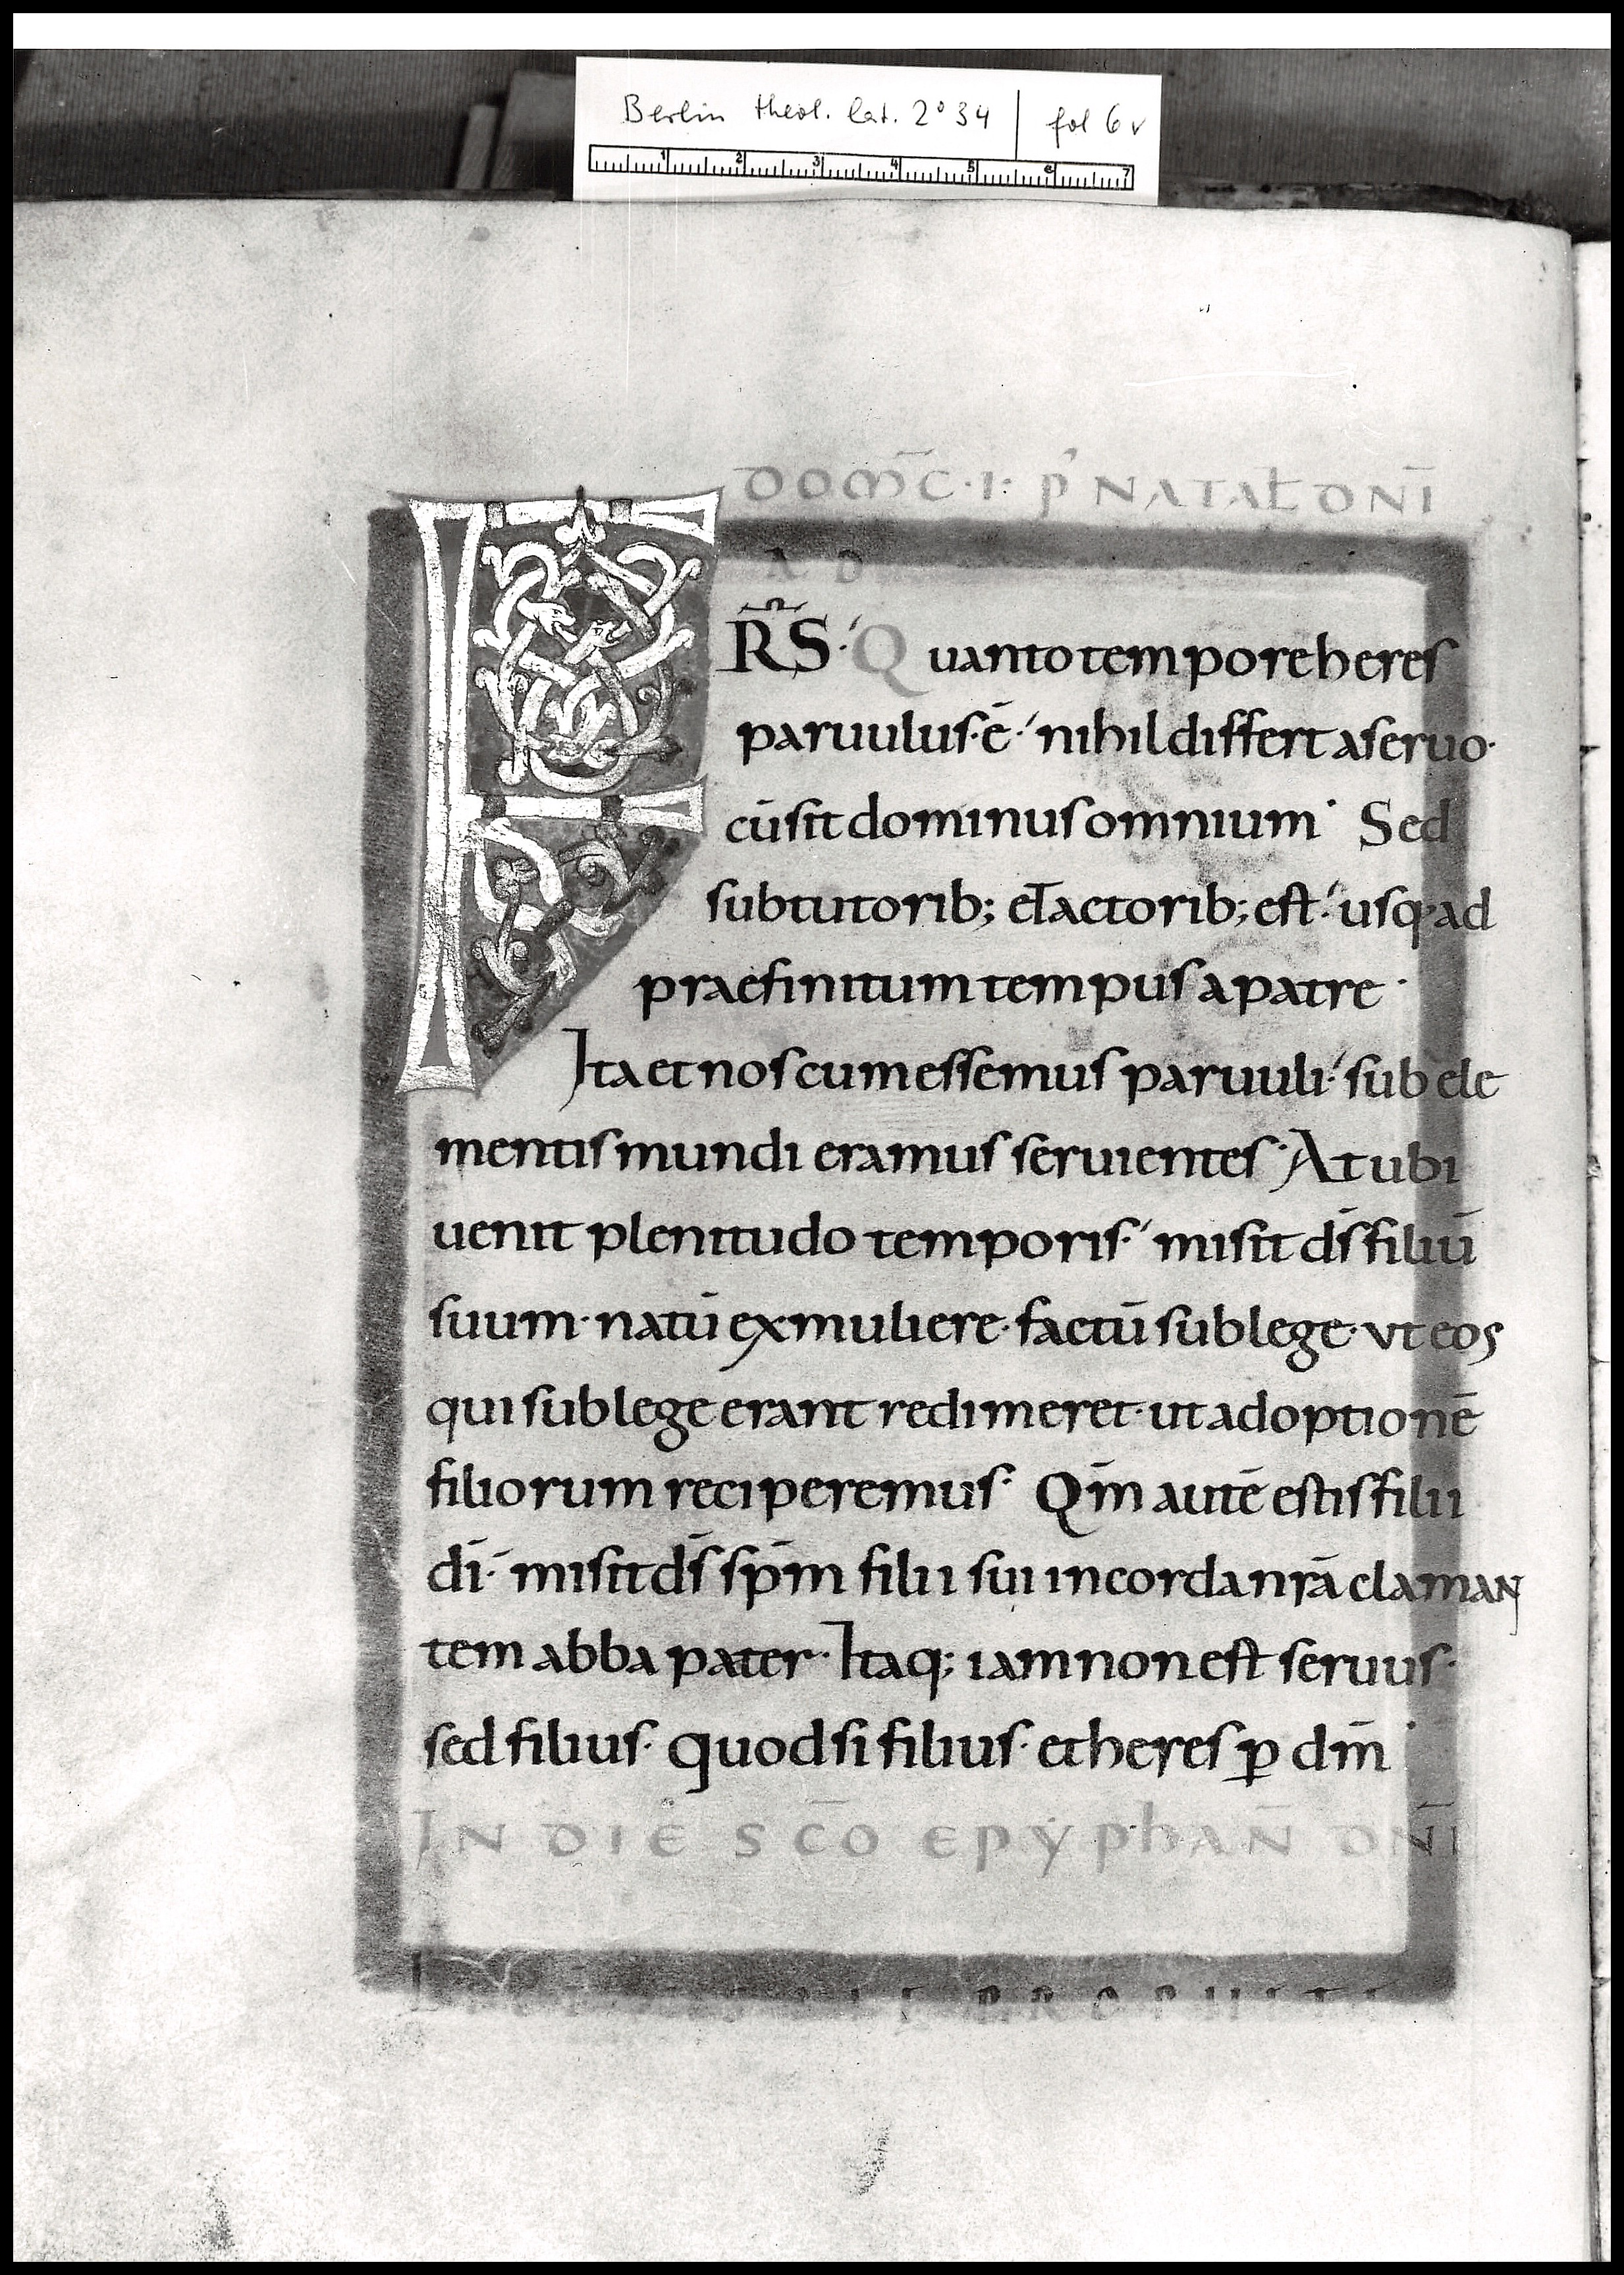 Berlin theol. lat. 2° 34 | fol 6v
1 2 3 4 5 6 7
DOM̄C·I· P' NATAƚ DN̄I
A D
F R̄S· Quanto tempore heres
paruulus· ē· nihil differt a seruo·
cū sit dominus omnium· Sed
sub tutorib; et actorib; est· usq; ad
praefinitum tempus a patre·
Ita et nos cum essemus paruuli· sub ele
mentis mundi eramus seruientes· At ubi
uenit plenitudo temporis· misit d̄s filiū
suum· natū ex muliere· factū sub lege· vt eos
qui sub lege erant redimeret· ut adoptionē
filiorum reciperemus· Qm̄ autē estis filii
dī· misit d̄s sp̄m filii sui in corda nr̄a claman
tem abba pater· Itaq; iam non est seruus·
sed filius· quod si filius· et heres ꝑ dm̄·
IN DIE SC̄O EPYPHAN̄ DN̄I
PROPHET